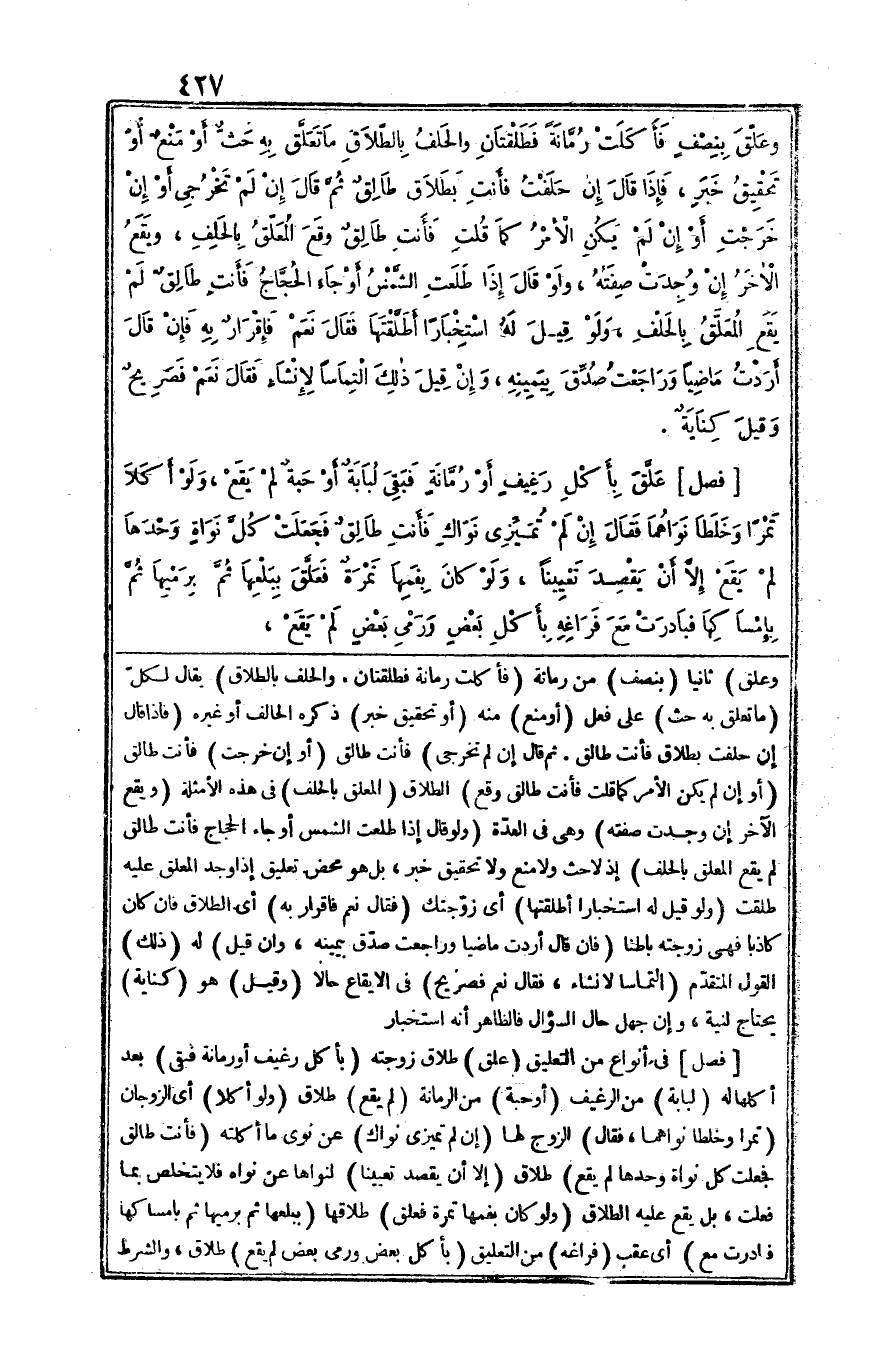 ٤٢٧
وَعَلَّقَ بِنِصْفٍ فَأَكَلَتْ رُمَّانَةً فَطَلْقَتَانِ وَالْحَلِفُ بِالطَّلَاقِ مَا تَعَلَّقَ بِهِ حَثٌّ أَوْ مَنْعٌ أَوْ
تَحْقِيقُ خَبَرٍ ، فَإِذَا قَالَ إِن حَلَفْتُ فَأَنتِ بِطَلَاقٍ طَالِقٌ ثُمَّ قَالَ إِنْ لَمْ تَخْرُجِي أَوْ إِنْ
خَرَجْتِ أَوْ إِنْ لَمْ يَكُنِ الْأَمْرُ كَمَا قُلْتِ فَأَنتِ طَالِقٌ وَقَعَ الْمُعَلَّقُ بِالْحَلِفِ ، وَيَقَعُ
الْآخَرُ إِنْ وُجِدَتْ صِفَتُهُ ، وَلَوْ قَالَ إِذَا طَلَعَتِ الشَّمْسُ أَوْ جَاءَ الْحُجَّاجُ فَأَنتِ طَالِقٌ لَمْ
يَقَعِ الْمُعَلَّقُ بِالْحَلِفِ ، وَلَوْ قِيلَ لَهُ اسْتِخْبَارًا أَطَلَّقْتَهَا فَقَالَ نَعَمْ فَإِقْرَارٌ بِهِ فَإِنْ قَالَ
أَرَدْتُ مَاضِيًا وَرَاجَعْتُ صُدِّقَ بِيَمِينِهِ ، وَإِنْ قِيلَ ذَٰلِكَ الْتِمَاسًا لِإِنْشَاءٍ فَقَالَ نَعَمْ فَصَرِيحٌ
وَقِيلَ كِنَايَةٌ .
[ فصل ] عَلَّقَ بِأَكْلِ رَغِيفٍ أَوْ رُمَّانَةٍ فَبَقِيَ لُبَابَةٌ أَوْ حَبَّةٌ لَمْ يَقَعْ ، وَلَوْ أَكَلَا
تَمْرًا وَخَلَطَا نَوَاهُمَا فَقَالَ إِنْ لَمْ تُمَيِّزِي نَوَاكِ فَأَنتِ طَالِقٌ فَجَعَلَتْ كُلَّ نَوَاةٍ وَحْدَهَا
لَمْ يَقَعْ إِلَّا أَنْ يَقْصِدَ تَعْيِينًا ، وَلَوْ كَانَ بِفَمِهَا تَمْرَةٌ فَعَلَّقَ بِبَلْعِهَا ثُمَّ بِرَمْيِهَا ثُمَّ
بِإِمْسَاكِهَا فَبَادَرَتْ مَعَ فَرَاغِهِ بِأَكْلِ بَعْضٍ وَرَمْيِ بَعْضٍ لَمْ يَقَعْ ،
وعلق ) ثانيا ( بنصف ) من رمانة ( فأكلت رمانة فطلقتان . والحلف بالطلاق ) يقال لكل
( ماتعلق به حث ) على فعل ( أومنع ) منه ( أو تحقيق خبر ) ذكره الحالف أو غيره ( فاذاقال
إن حلفت بطلاق فأنت طالق . ثم قال إن لم تخرجى ) فأنت طالق ( أو إن خرجت ) فأنت طالق
( أو إن لم يكن الأمر كماقلت فأنت طالق وقع ) الطلاق ( المعلق بالحلف ) فى هذه الأمثلة ( ويقع
الآخر إن وجدت صفته ) وهى فى العدّة ( ولوقال إذا طلعت الشمس أوجاء الحجاج فأنت طالق
لم يقع المعلق بالحلف ) إذ لاحث ولامنع ولا تحقيق خبر ، بل هو محض تعليق إذاوجد المعلق عليه
طلقت ( ولو قيل له استخبارا أطلقتها ) أى زوّجتك ( فقال نعم فاقرار به ) أى الطلاق فان كان
كاذبا فهى زوجته باطنا ( فان قال أردت ماضيا وراجعت صدّق بيمينه ، وان قيل ) له ( ذلك )
القول المتقدّم ( التماسا لانشاء ، فقال نعم فصريح ) فى الايقاع حالا ( وقيل ) هو ( كناية )
يحتاج لنية ، وإن جهل حال السؤال فالظاهر أنه استخبار
[ فصل ] فى أنواع من التعليق ( علق ) طلاق زوجته ( بأكل رغيف أورمانة فبقى ) بعد
أكلها له ( لبابة ) من الرغيف ( أوحبة ) من الرمانة ( لم يقع ) طلاق ( ولو أكلا ) أى الزوجان
( تمرا وخلطا نواهما ، فقال ) الزوج لها ( إن لم تميزى نواك ) عن نوى ما أكلته ( فأنت طالق
فجعلت كل نواة وحدها لم يقع ) طلاق ( إلا أن يقصد تعيينا ) لنواها عن نواه فلايتخلص بما
فعلت ، بل يقع عليه الطلاق ( ولو كان بفمها تمرة فعلق ) طلاقها ( ببلعها ثم برميها ثم بامساكها
فبادرت مع ) أى عقب ( فراغه ) من التعليق ( بأكل بعض ورمى بعض لم يقع ) طلاق ، والشرط